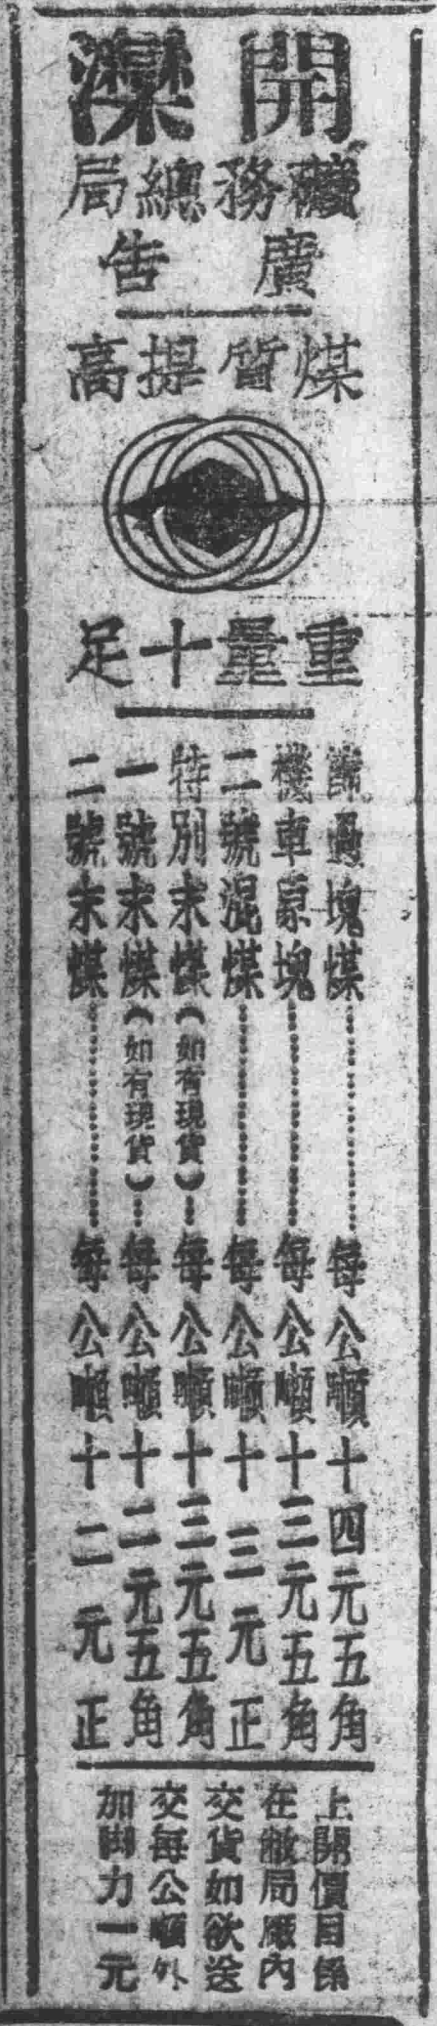 開灤
礦務總局
廣告
煤質提高
重量十足
篩過塊煤…………每公噸十四元五角
機車原塊…………每公噸十三元五角
二號混煤…………每公噸十三元正
特別末煤（如有現貨）…每公噸十三元五角
一號末煤（如有現貨）…每公噸十二元五角
二號末煤…………每公噸十二元正
上開價目係
在敝局廠內
交貨如欲送
交每公噸外
加脚力一元